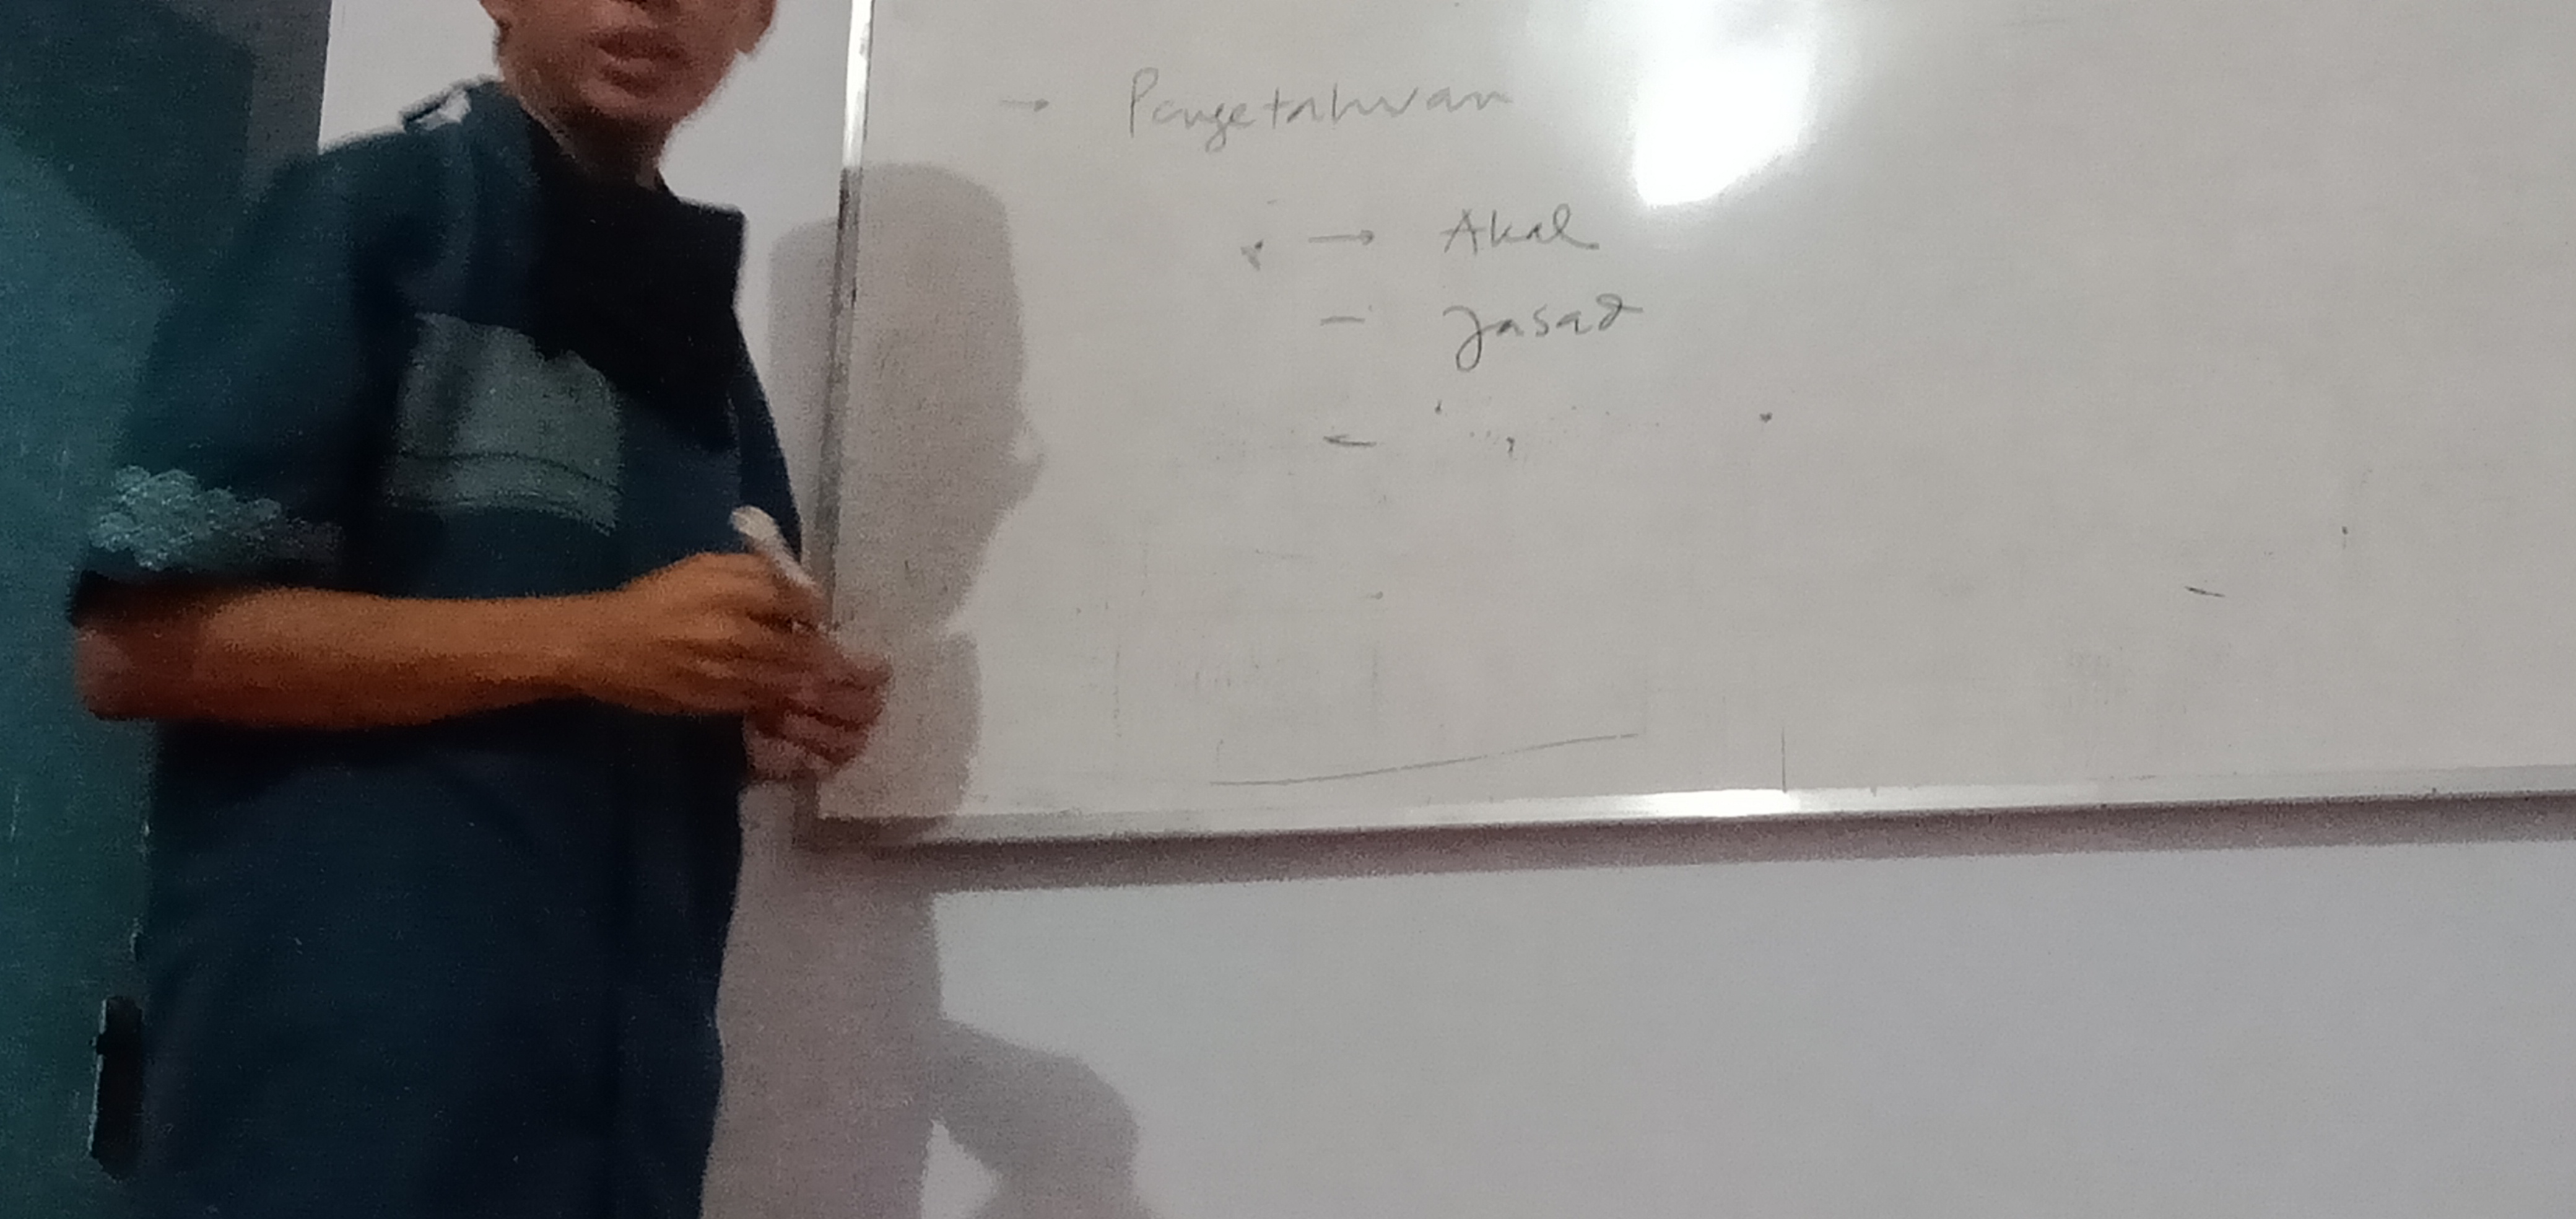 → Pengetahuan
→ Akal
- Jasad